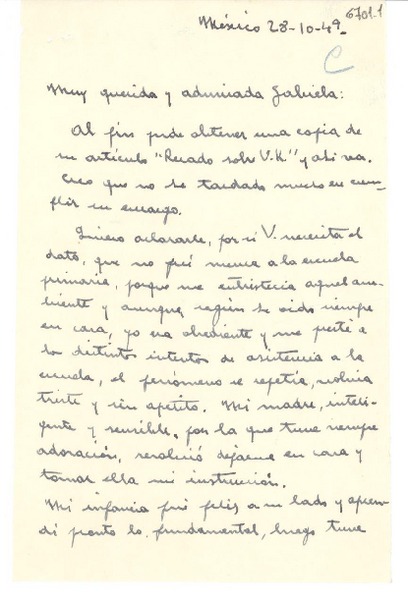 6701-1
México 28-10-49.
C
Muy querida y admirada Gabriela:
Al fin pude obtener una copia de
su artículo "Recado sobre V.K" y ahí va.
Creo que no he tardado mucho en cum-
plir su encargo.
Quiero aclararle, por si V. necesita el
dato, que no fuí nunca a la escuela
primaria, porque me entristecía aquel am-
biente y aunque, según he oído siempre
en casa, yo era obediente y me presté a
los distintos intentos de asistencia a la
escuela, el fenómeno se repetía, volvía
triste y sin apetito. Mi madre, inteli-
gente y sensible, por la que tuve siempre
adoración, resolvió dejarme en casa y
tomar ella mi instrucción.
Mi infancia fué feliz a su lado y apren-
dí pronto lo fundamental, luego tuve